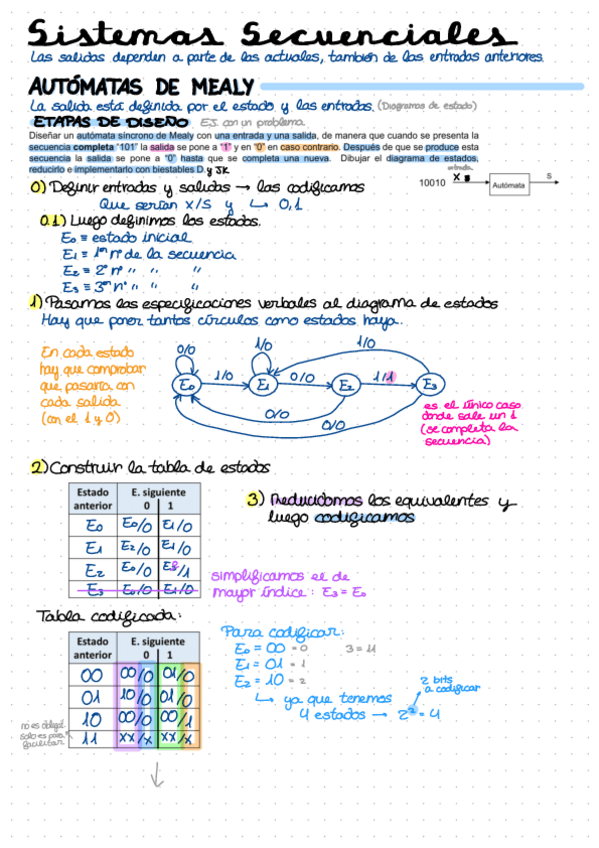 Sistemas Secuenciales
Las salidas dependen a parte de las actuales, también de las entradas anteriores.
AUTÓMATAS DE MEALY
La salida está definida por el estado y las entradas. (Diagramas de estado)
ETAPAS DE DISEÑO EJ. con un problema
Diseñar un autómata síncrono de Mealy con una entrada y una salida, de manera que cuando se presenta la
secuencia completa "101" la salida se pone a "1" y en "0" en caso contrario. Después de que se produce esta
secuencia la salida se pone a "0" hasta que se completa una nueva. Dibujar el diagrama de estados,
reducirlo e implementarlo con biestables D. y JK
entrada
10010 X Autómata S
0) Definir entradas y salidas → las codificamos
Que serían X/S y ↳ 0,1
0.1) Luego definimos los estados.
E0 ≡ estado inicial
E1 ≡ 1er nº de la secuencia
E2 ≡ 2º nº " " "
E3 ≡ 3er nº " " "
1) Pasamos las especificaciones verbales al diagrama de estados
Hay que poner tantos círculos como estados haya.
En cada estado
hay que comprobar
que pasaría con
cada salida
(con el 1 y 0)
0/0 1/0 1/0
E0 1/0 E1 0/0 E2 1/1 E3
0/0
0/0
es el único caso
donde sale un 1
(se completa la
secuencia)
2) Construir la tabla de estados
Estado anterior E. siguiente
0 1
E0 E0/0 E1/0
E1 E2/0 E1/0
E2 E0/0 /1
E3 E0/0 E1/0
3) Reducidomos los equivalentes y
luego codificamos
simplificamos el de
mayor índice: E3 = E0
Tabla codificada:
Estado anterior E. siguiente
0 1
00 00/0 01/0
01 10/0 01/0
10 00/0 00/1
11 xx/x xx/x
no es obligat
solo es para
facilitar
Para codificar:
E0 = 00 = 0 3 = 11
E1 = 01 = 1
E2 = 10 = 2
↳ ya que tenemos
4 estados → 2² = 4
2 bits
a codificar